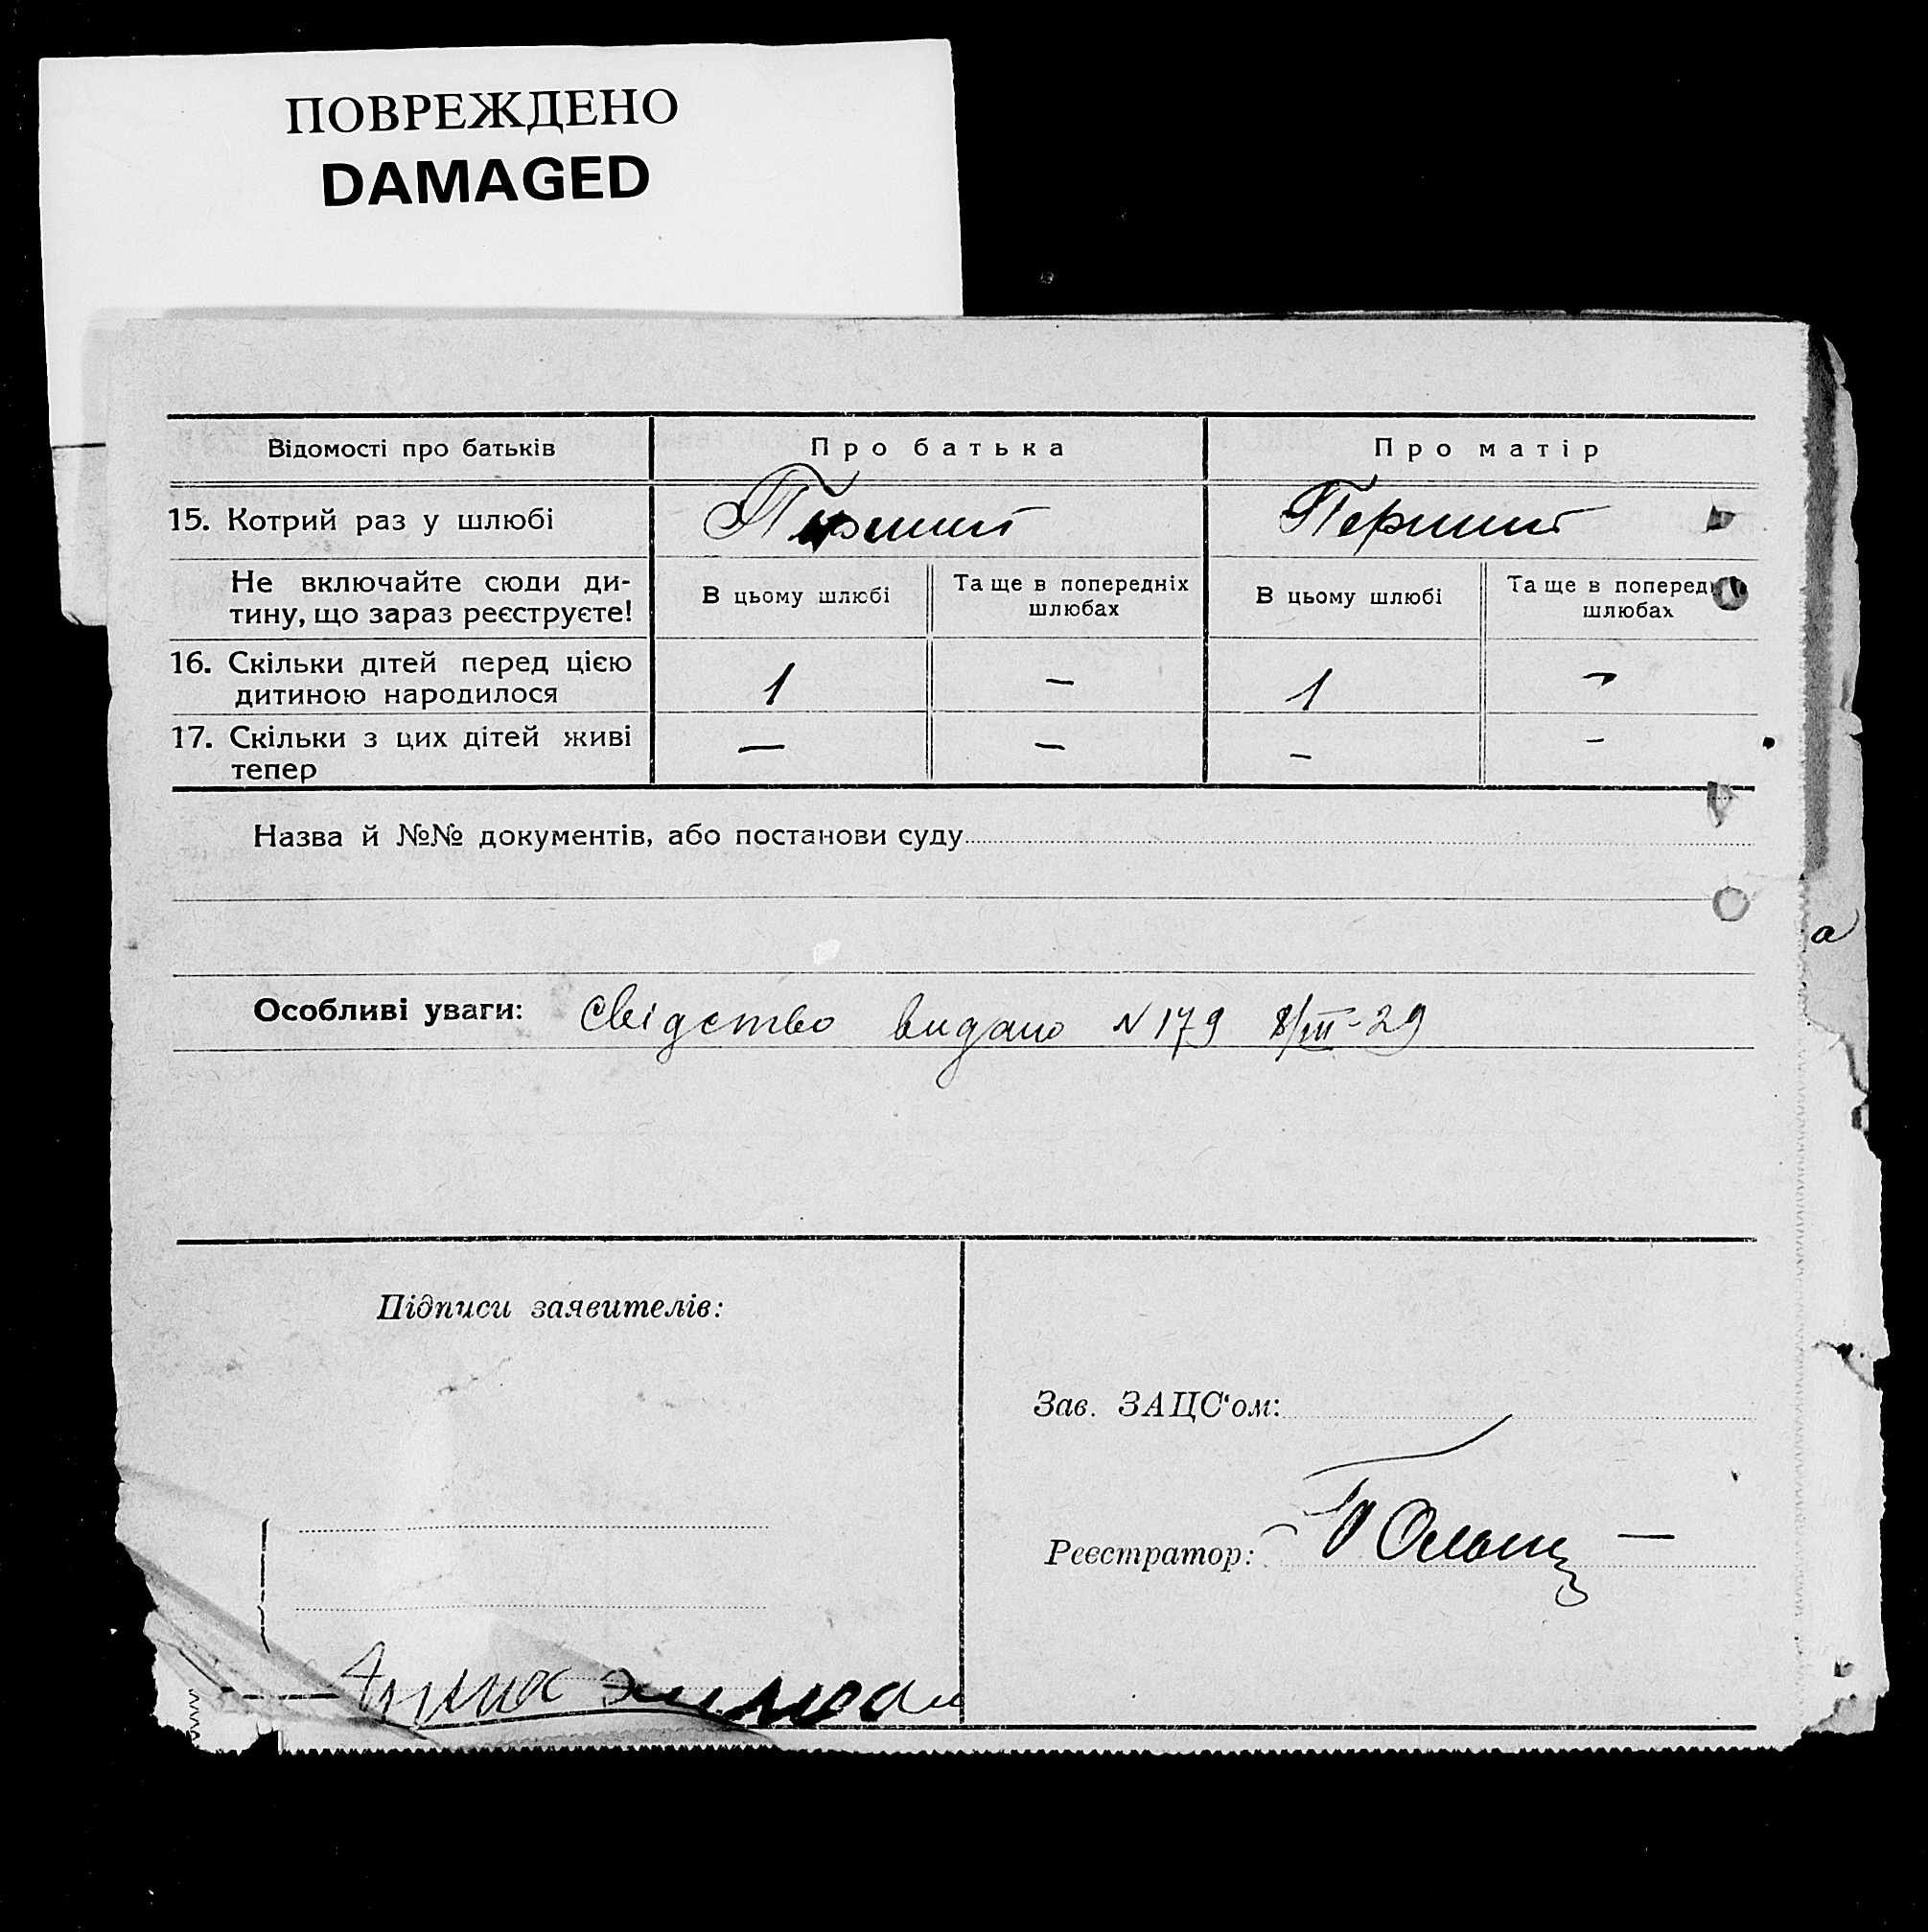 ПОВРЕЖДЕНО
DAMAGED
Відомості про батьків Про батька Про матір
15. Котрий раз у шлюбі Перший Перший
Не включайте сюди ди-
тину, що зараз реєструєте!
В цьому шлюбі Та ще в попередніх
шлюбах
В цьому шлюбі Та ще в поперед
шлюбах
16. Скільки дітей перед цією
дитиною народилося 1 — 1 —
17. Скільки з цих дітей живі
тепер — — — —
Назва й №№ документів, або постанови суду
а
Особливі уваги: Свідство видано N 179 8/III-29
Підписи заявителів:
Зав. ЗАЦС'ом:
Реєстратор: